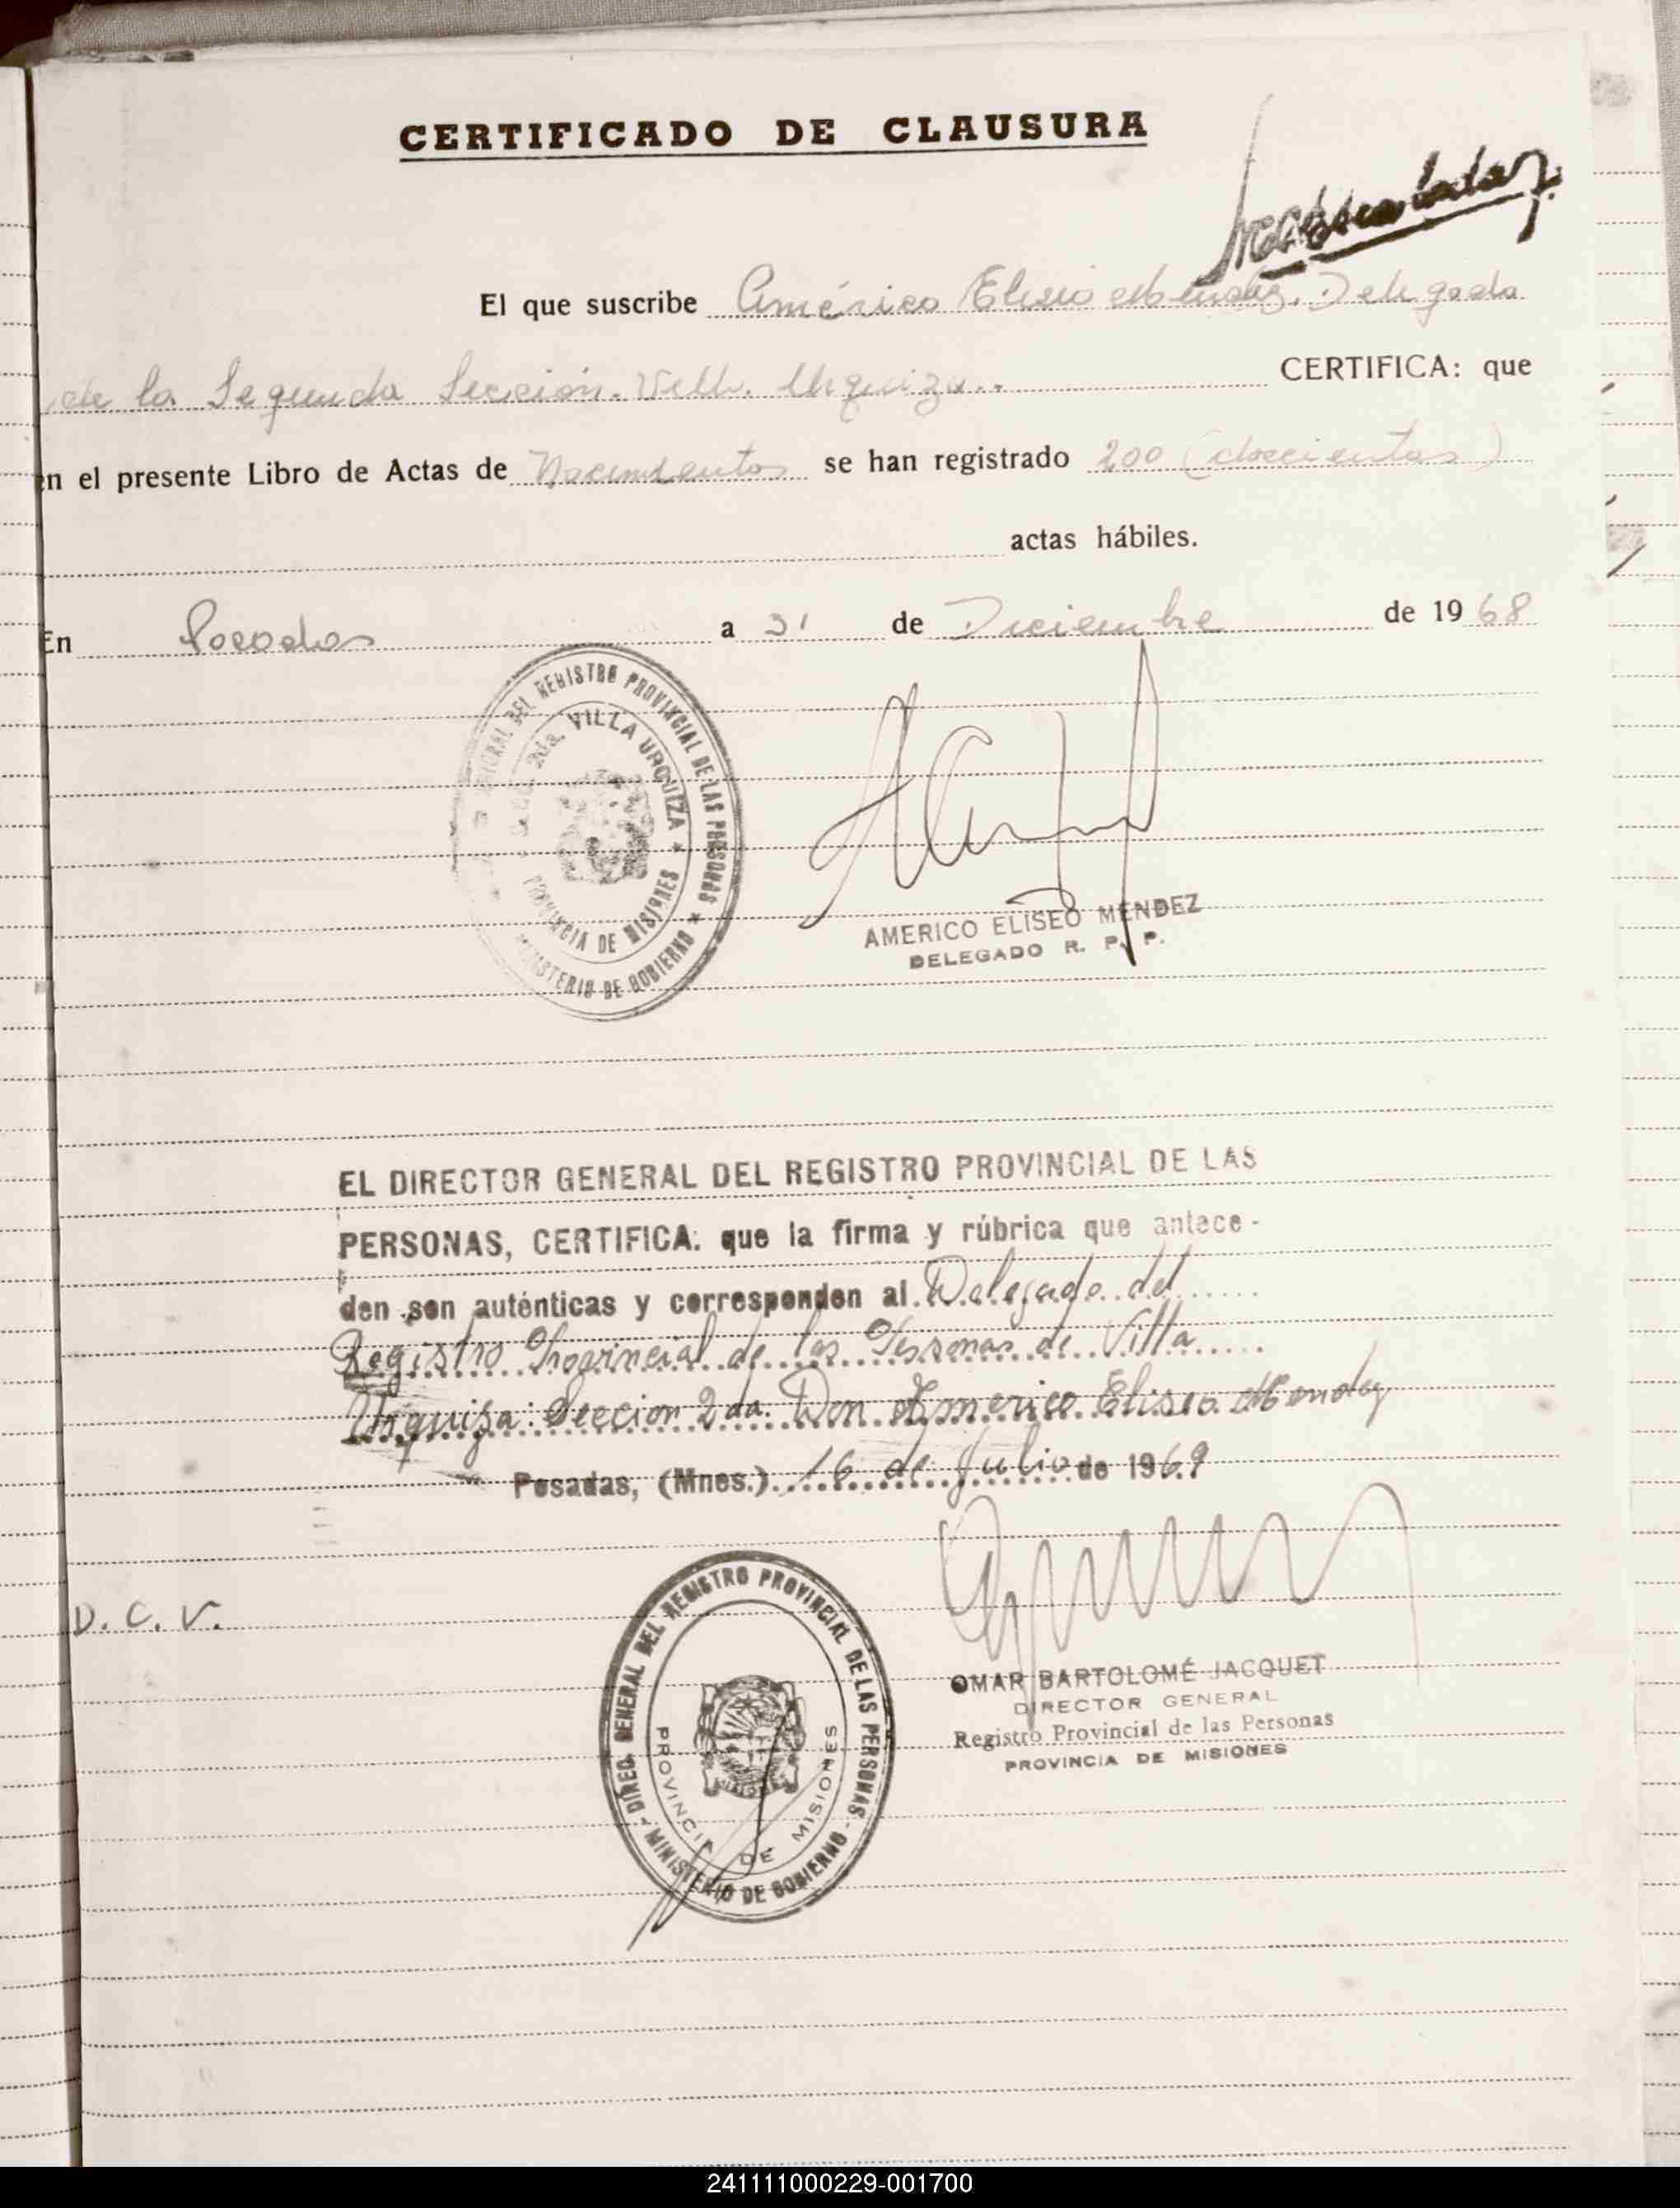 CERTIFICADO DE CLAUSURA
El que suscribe Américo Eliseo Mendez. Delegado
de la Segunda Sección. Villa Urquiza..
CERTIFICA: que
en el presente Libro de Actas de Nacimientos se han registrado 200 (doscientas)
actas hábiles.
En Posadas a 31 de Diciembre de 1968
GENERAL DEL REGISTRO PROVINCIAL DE LAS PERSONAS ★
MINISTERIO DE GOBIERNO
2da. VILLA URQUIZA ★
PROVINCIA DE MISIONES
AMERICO ELISEO MENDEZ
DELEGADO R. P. P.
EL DIRECTOR GENERAL DEL REGISTRO PROVINCIAL DE LAS
PERSONAS, CERTIFICA: que la firma y rúbrica que antece-
den son auténticas y corresponden al Delegado del
Registro Provincial de las Personas de Villa
Urquiza: Seccion 2da. Don Americo Eliseo Mendez
Posadas, (Mnes.) 16 de Julio de 1969
D. C. V.
DIREC. GENERAL DEL REGISTRO PROVINCIAL DE LAS PERSONAS -
MINISTERIO DE GOBIERNO -
PROVINCIA DE MISIONES
OMAR BARTOLOMÉ JACQUET
DIRECTOR GENERAL
Registro Provincial de las Personas
PROVINCIA DE MISIONES
241111000229-001700